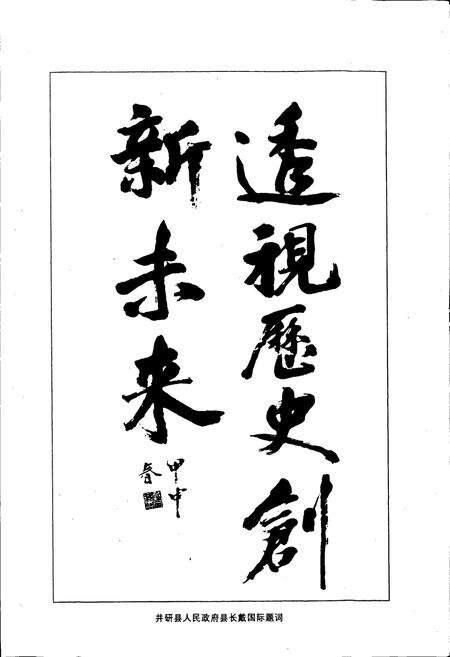 透視歷史創
新未来
甲申
春
井研县人民政府县长戴国际题词